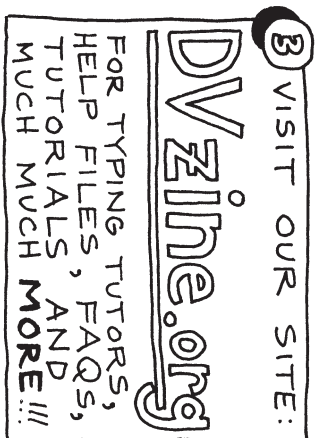 3 VISIT OUR SITE:
DVzine.org
FOR TYPING TUTORS,
HELP FILES, FAQS,
TUTORIALS, AND
MUCH MUCH MORE!!!